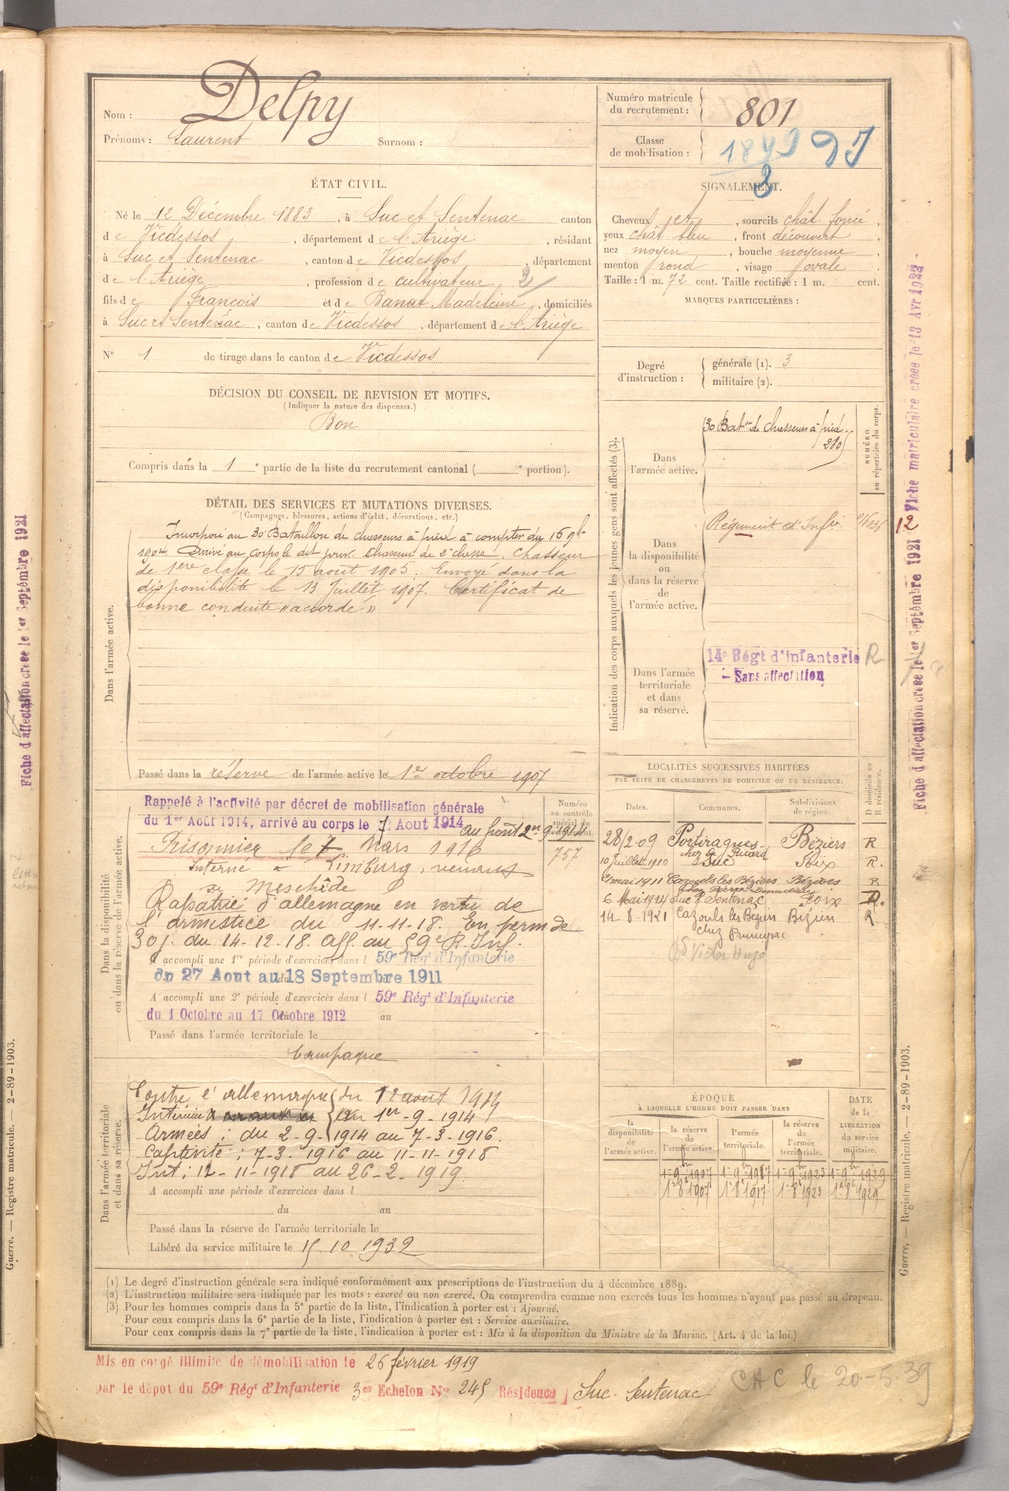 Nom : Delpy
Prénoms : Laurent Surnom :
Numéro matricule
du recrutement : 801
Classe
de mobilisation :
ÉTAT CIVIL.
Né le 12 Décembre 1883, à Suc et Sentenac canton
de Vicdessos, département de l'Ariège, résidant
à Suc et Sentenac, canton de Vicdessos, département
de l'Ariège, profession de cultivateur
fils de François et de Banat Madeleine, domiciliés
à Suc et Sentenac, canton de Vicdessos, département de l'Ariège
N° 1 de tirage dans le canton de Vicdessos
SIGNALEMENT.
Cheveux jets, sourcils chât foncé,
yeux chât bleu, front découvert,
nez moyen, bouche moyenne,
menton rond, visage ovale.
Taille : 1 m. 72 cent. Taille rectifiée : 1 m. cent.
MARQUES PARTICULIÈRES :
Degré
d'instruction :
générale (1). 3
militaire (2).
DÉCISION DU CONSEIL DE REVISION ET MOTIFS.
(Indiquer la nature des dispenses.)
Bon
Compris dans la 1e partie de la liste du recrutement cantonal ( e portion).
DÉTAIL DES SERVICES ET MUTATIONS DIVERSES.
(Campagnes, blessures, actions d'éclat, décorations, etc.)
Dans l'armée active.
Incorporé au 30 Bataillon de chasseurs à pied à compter du 16 9bre
1904. Arrivé au corps le dit jour. Chasseur de 2e classe. Chasseur
de 1ère classe le 15 août 1905. Envoyé dans la
disponibilité le 13 Juillet 1907. Certificat de
bonne conduite "accordé"
Passé dans la réserve de l'armée active le 1er octobre 1907
Indication des corps auxquels les jeunes gens sont affectés (3).
NUMÉRO
au répertoire du corps.
Dans
l'armée active.
30 Baton de chasseurs à pied
Dans
la disponibilité
ou
dans la réserve
de
l'armée active.
Régiment d'Infie
Dans l'armée
territoriale
et dans
sa réserve.
14e Régt d'infanterie R
- Sans affectation
Dans la disponibilité
ou dans la réserve de l'armée active.
Rappelé à l'activité par décret de mobilisation générale
du 1er Août 1914, arrivé au corps le Août 1914
Numéro
au contrôle
757
Prisonnier le 7 Mars 1916
Interné à Limburg, venant
de Meschède
Rapatrié d'allemagne en vertu de
l'armistice du 11-11-18. En perm de
30 j. du 14-12-18. Aff. au 59e R. Inf.
A accompli une 1re période d'exercices dans l 59e Régt d'Infanterie
du 27 Aout au 18 Septembre 1911
A accompli une 2e période d'exercices dans l 59e Régt d'Infanterie
du 1 Octobre au 17 Octobre 1912 au
Passé dans l'armée territoriale le
LOCALITÉS SUCCESSIVES HABITÉES
PAR SUITE DE CHANGEMENTS DE DOMICILE OU DE RÉSIDENCE.
D domicile ou
R résidence.
Dates. Communes. Subdivisions
de région.
28/2-09 Portiragnes Béziers R
chez Ricard
10 juillet 1910 Suc Foix R.
mai 1911 Cazouls les Béziers Béziers R
6 Mai 1914 Suc et Sentenac Foix R.
14-8-1921 Cazouls les Beziers Béziers R
Victor Hugo
Campagne
Dans l'armée territoriale
et dans sa réserve.
Contre l'allemagne du 12 août 1914
Intérieur au 1er-9-1914
Armées : du 2-9-1914 au 7-3-1916.
Captivité : 7-3-1916 au 11-11-1918
Int : 12-11-1918 au 26-2-1919
A accompli une période d'exercices dans l
du au
Passé dans la réserve de l'armée territoriale le
Libéré du service militaire le 15 10 1932
ÉPOQUE
À LAQUELLE L'HOMME DOIT PASSER DANS
DATE
DE LA
LIBÉRATION
du service
militaire.
la
disponibilité
de
l'armée active.
la réserve
de
l'armée active.
l'armée
territoriale.
la réserve
de
l'armée
territoriale.
(1) Le degré d'instruction générale sera indiqué conformément aux prescriptions de l'instruction du 4 décembre 1889.
(2) L'instruction militaire sera indiquée par les mots : exercé ou non exercé. On comprendra comme non exercés tous les hommes n'ayant pas passé au drapeau.
(3) Pour les hommes compris dans la 5e partie de la liste, l'indication à porter est : Ajourné.
Pour ceux compris dans la 6e partie de la liste, l'indication à porter est : Service auxiliaire.
Pour ceux compris dans la 7e partie de la liste, l'indication à porter est : Mis à la disposition du Ministre de la Marine. (Art. 4 de la loi.)
Mis en congé illimité de démobilisation le 26 février 1919
par le dépôt du 59e Régt d'Infanterie 3er Echelon No 245 Résidence Suc-Sentenac
CHC le 20-5-39
Guerre. — Registre matricule. — 2-89-1903.
Guerre. — Registre matricule. — 2-89-1903.
Fiche d'affectation créée le 1er Septembre 1921
Fiche d'affectation créée le 1er Septembre 1921
Fiche matriculaire créée le 13 Avr 1922